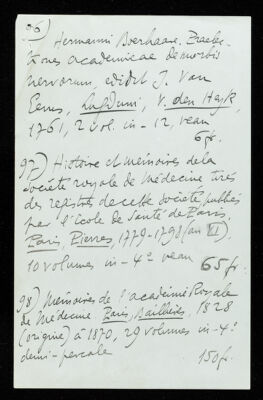 96)
Hermanni Boerhaave, Praelec-
tiones academicae de morbis
nervorum, edidit J. Van
Eems, Lugduni, V. den Hayk,
1761, 2 vol. in-12, veau
6 fr.
97) Histoire et mémoires de la
Société royale de Médecine tirés
des registres de cette société, publiés
par l'école de Santé de Paris,
Paris, Pierres, 1779-1798 (an VI)
10 volumes in-4º veau 65 fr.
98) Mémoires de l'académie Royale
de Médecine Paris, Baillière, 1828
(origine) à 1870, 29 volumes in-4º
demi-percale 150 fr.